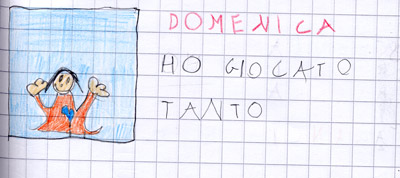 DOMENICA
HO GIOCATO
TANTO